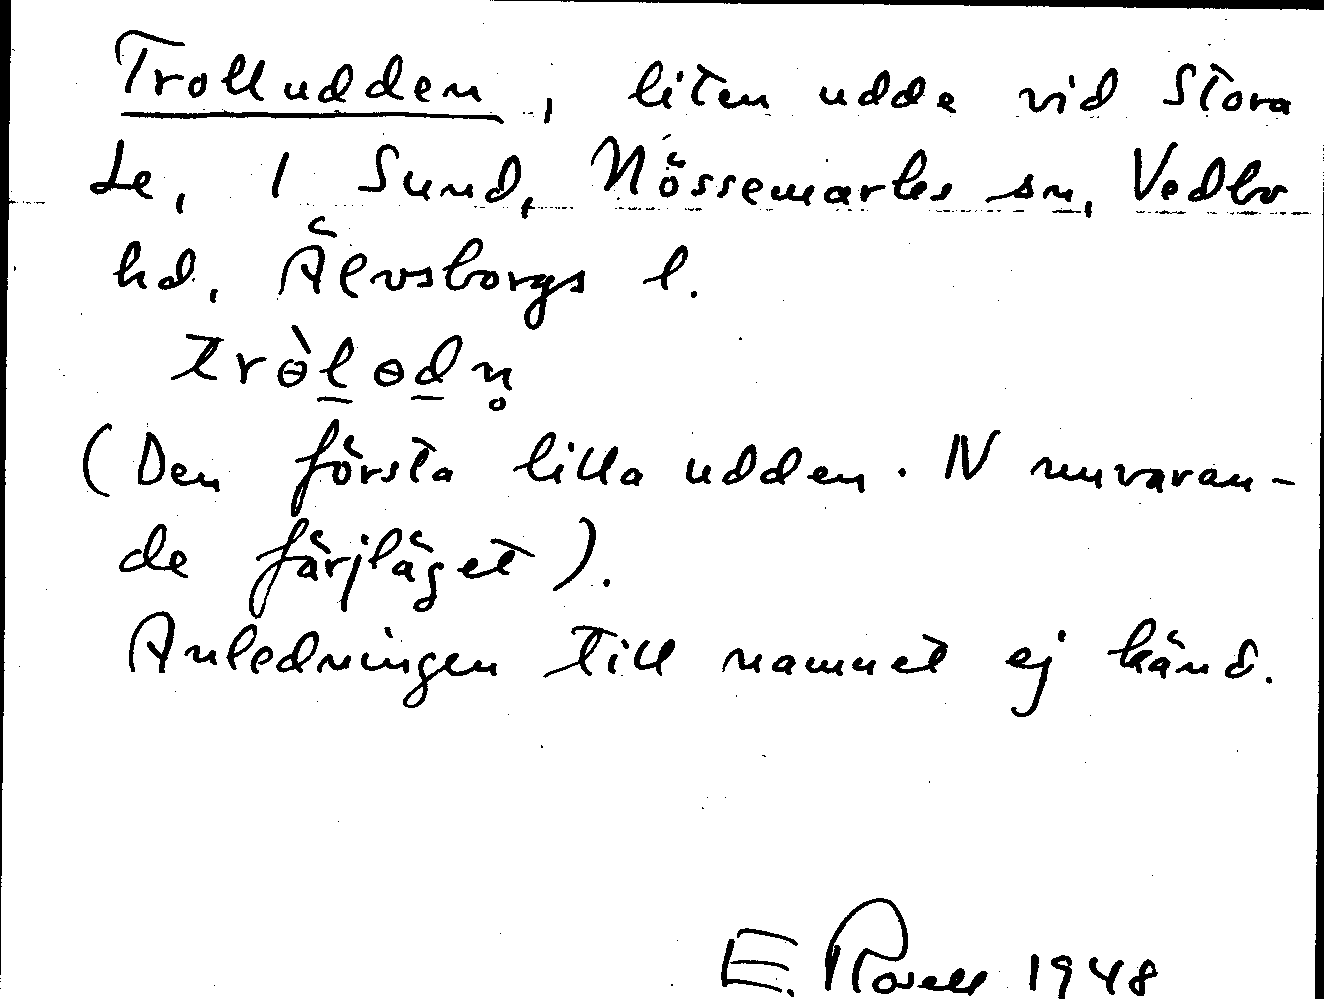 Trolludden, liten udde vid Stora
Le, 1 Sund, Nössemarks sn, Vedbo
hd, Älvsborgs l.
trɵ̀l̲ɵd̲n̥
(Den första lilla udden. N nuvaran-
de färjläget).
Anledningen till namnet ej känd.
E. Rosell 1948